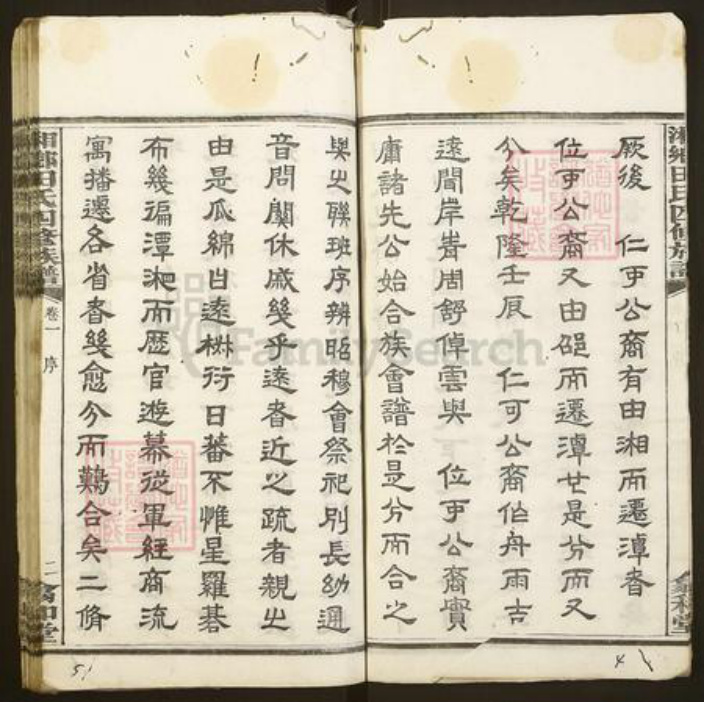 湘鄉田氏四修族譜
敦和堂
厥後 仁可公裔有由湘而遷潭者
位可公裔又由邵而遷潭廿是分而又
分矣乾隆壬辰 仁可公裔伯舟雨吉
遠聞岸青周舒倬雲與 位可公裔實
庸諸先公始合族會譜於是分而合之
與之聯班序辨昭穆會祭祀別長幼通
音問關休戚幾乎遠者近之疏者親之
由是瓜綿日遠椒衍日蕃不惟星羅碁
布幾徧潭湘而歷官遊幕從軍經商流
寓播遷各省者幾愈分而難合矣二脩
湘鄉田氏四修族譜
卷一 序
二
和堂
4
51
FamilySearch